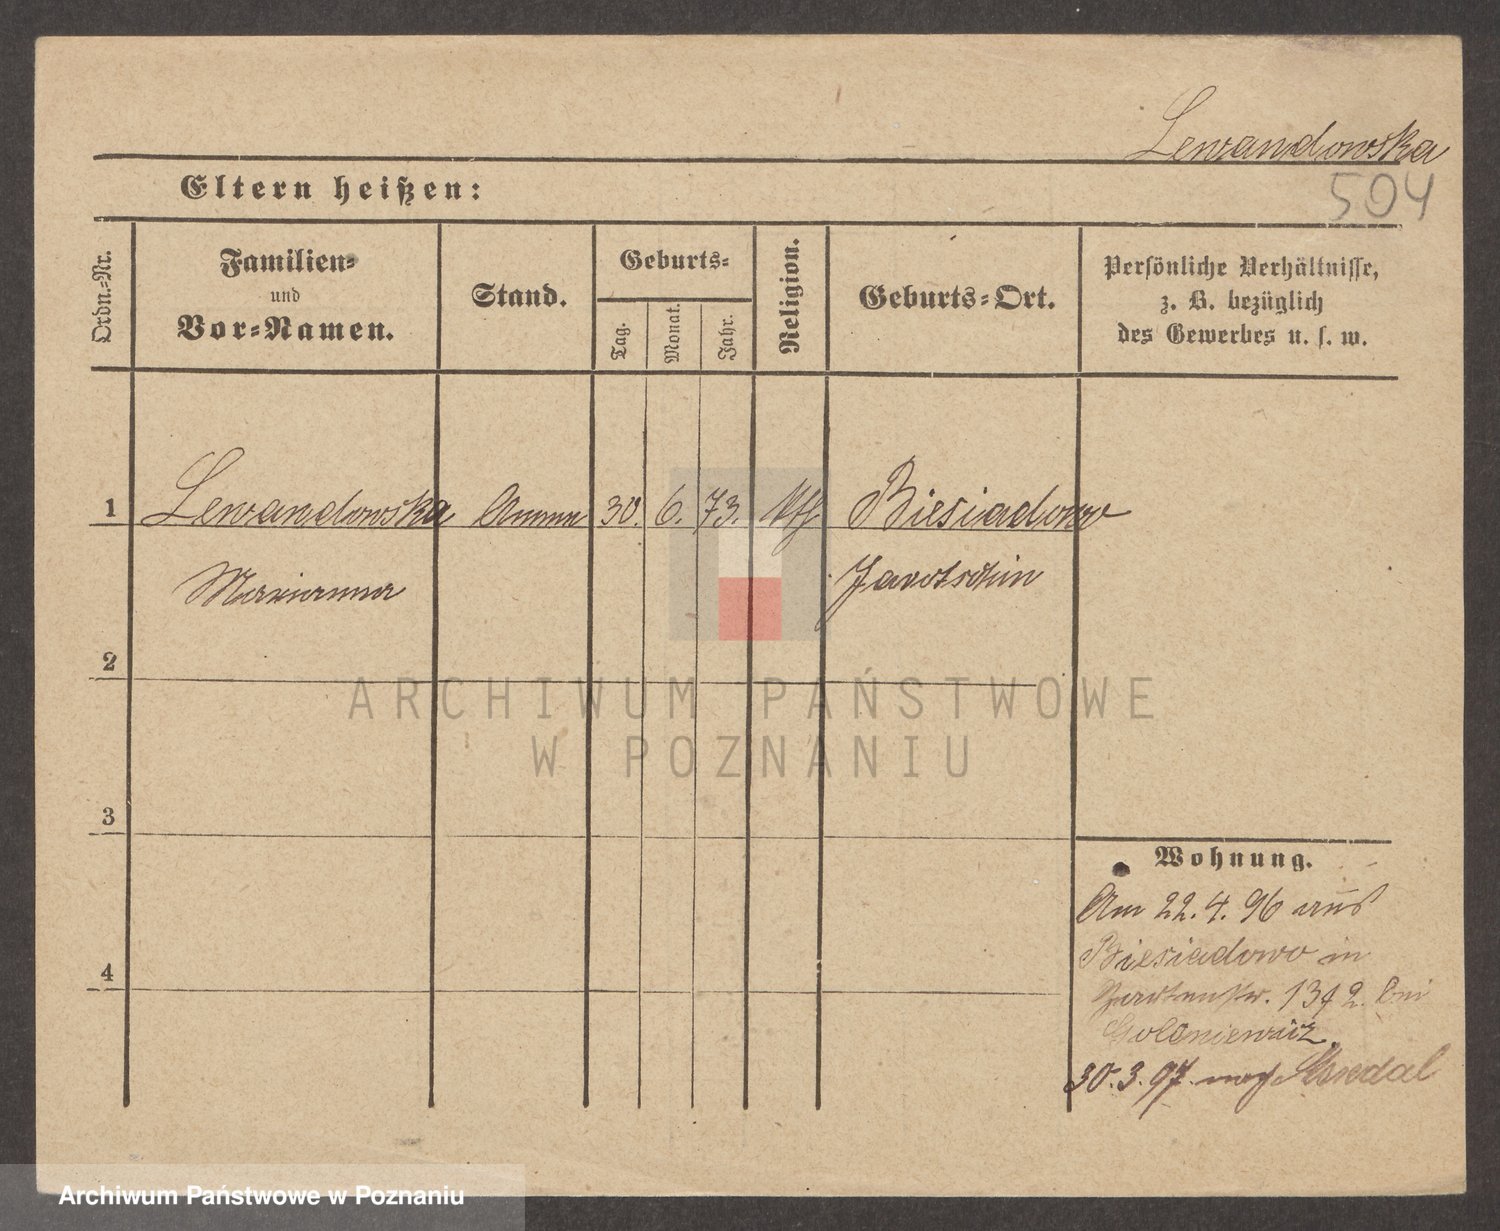 Lewandowska
504
Eltern heißen:
Ordn.-Nr.
Familien-
und
Vor-Namen.
Stand.
Geburts-
Tag.
Monat.
Jahr.
Religion.
Geburts-Ort.
Persönliche Verhältnisse,
z. B. bezüglich
des Gewerbes u. s. w.
1 Lewandowska Amme 30. 6. 73. Biesiadowo
Marianna Jarotschin
2
ARCHIWUM PAŃSTWOWE
W POZNANIU
3
4
Wohnung.
Am 22. 4. 96 aus
Biesiadowo in
Gartenstr. 13 2. bei
30. 3. 97. nach
Archiwum Państwowe w Poznaniu